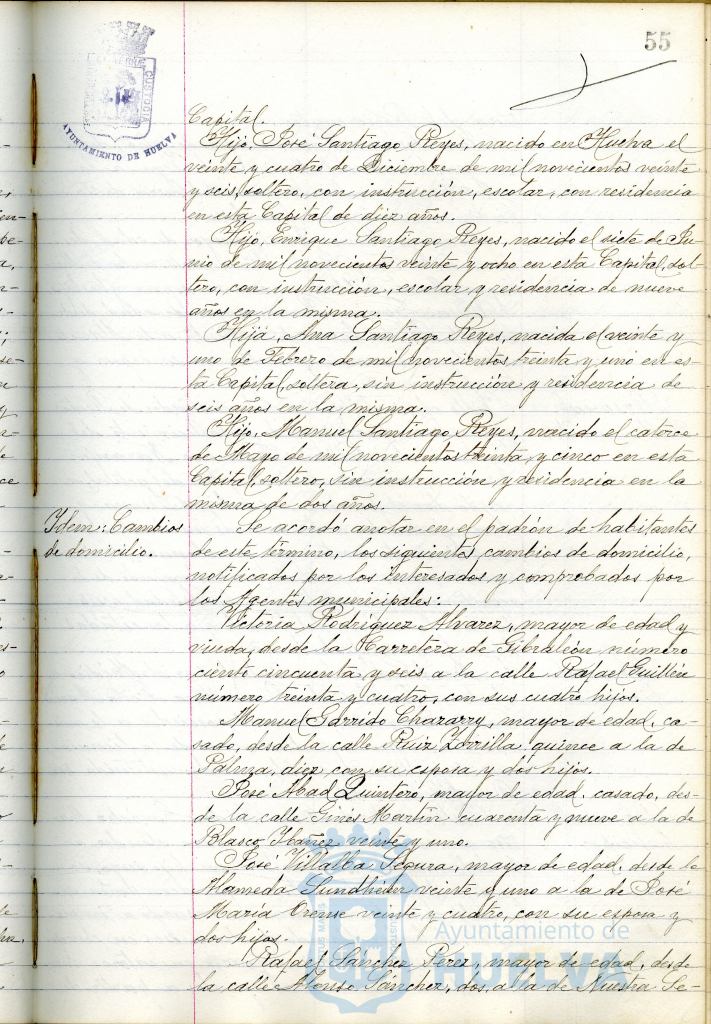 55
CUSTODIA
AYUNTAMIENTO DE HUELVA
Capital.
Hijo, José Santiago Reyes, nacido en Huelva el
veinte y cuatro de Diciembre de mil novecientos veinte
y seis, soltero, con instrucción, escolar, con residencia
en esta Capital de diez años.
Hijo, Enrique Santiago Reyes, nacido el siete de Ju-
nio de mil novecientos veinte y ocho en esta Capital, sol-
tero, con instrucción, escolar y residencia de nueve
años en la misma.
Hija, Ana Santiago Reyes, nacida el veinte y
uno de Febrero de mil novecientos treinta y uno en es-
ta Capital, soltera, sin instrucción y residencia de
seis años en la misma.
Hijo, Manuel Santiago Reyes, nacido el catorce
de Mayo de mil novecientos treinta y cinco en esta
Capital, soltero, sin instrucción y residencia en la
misma de dos años.
Idem: Cambios
de domicilio.
Se acordó anotar en el padrón de habitantes
de este término, los siguientes cambios de domicilio,
notificados por los interesados y comprobados por
los Agentes municipales:
Victoria Rodríguez Alvarez, mayor de edad y
viuda, desde la Carretera de Gibraleón número
ciento cincuenta y seis a la calle Rafael Guillén
número treinta y cuatro, con sus cuatro hijos.
Manuel Garrido Chazarry, mayor de edad, ca-
sado, desde la calle Ruiz Zorrilla quince a la de
Palma, diez con su esposa y dos hijos.
José Abad Quintero, mayor de edad, casado, des-
de la calle Ginés Martín cuarenta y nueve a la de
Blasco Ibañez veinte y uno.
José Villalba Segura, mayor de edad, desde la
Alameda Sundheim veinte y uno a la de José
María Orense veinte y cuatro, con su esposa y
dos hijos.
Rafael Sánchez Pérez, mayor de edad, desde
la calle Alonso Sánchez, dos, a la de Nuestra Se-
Ayuntamiento de
HUELVA